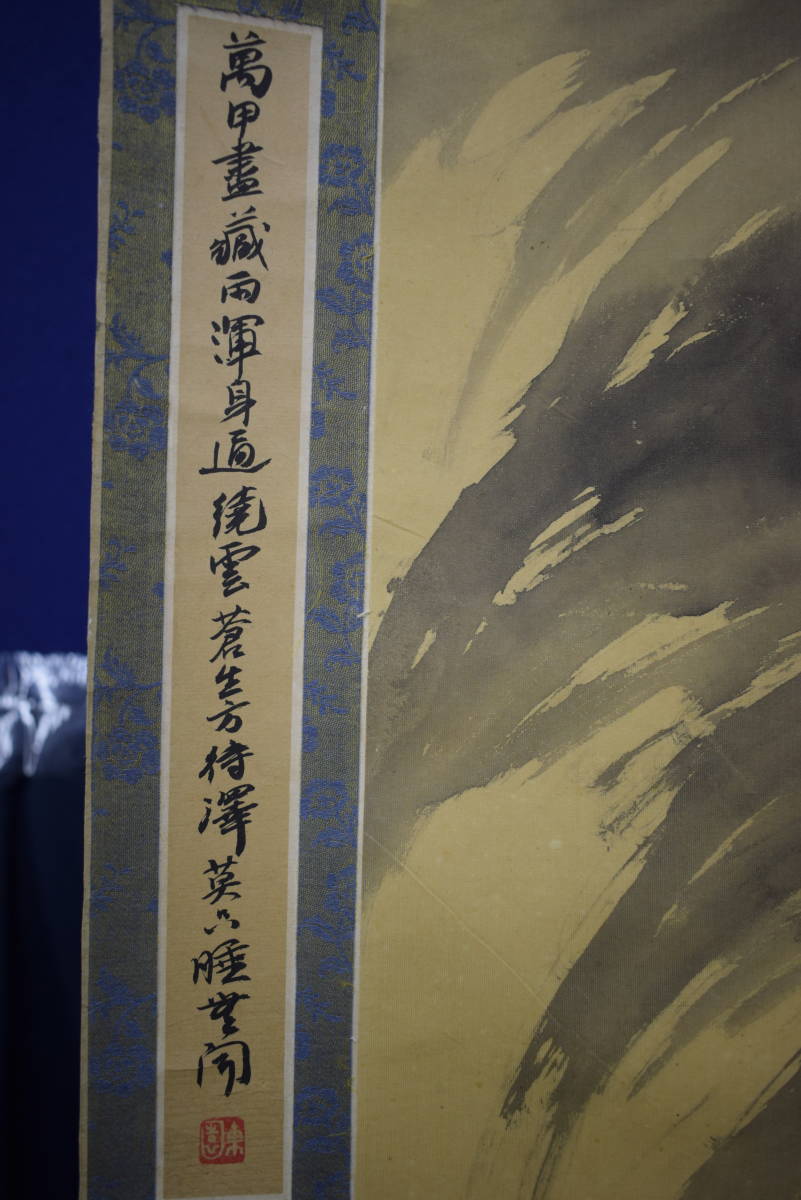 萬甲盡藏雨渾身逈繞雲蒼生方待澤莫只睡無聞